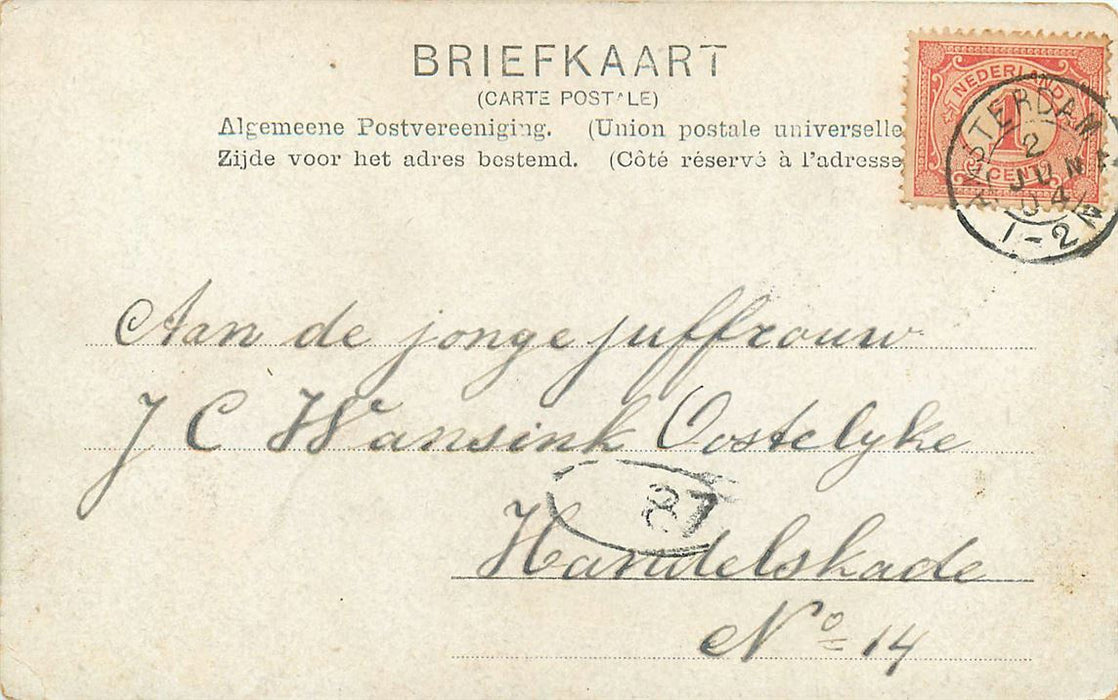 BRIEFKAART
(CARTE POSTALE)
Algemeene Postvereeniging. (Union postale universelle
Zijde voor het adres bestemd. (Côté réservé à l'adresse
NEDERLAND
1
CENT
AMSTERDAM
2
JUN
04
1-2 N
Aan de jonge juffrouw
J C Wansink Oostelyke
87
Handelskade
No 14